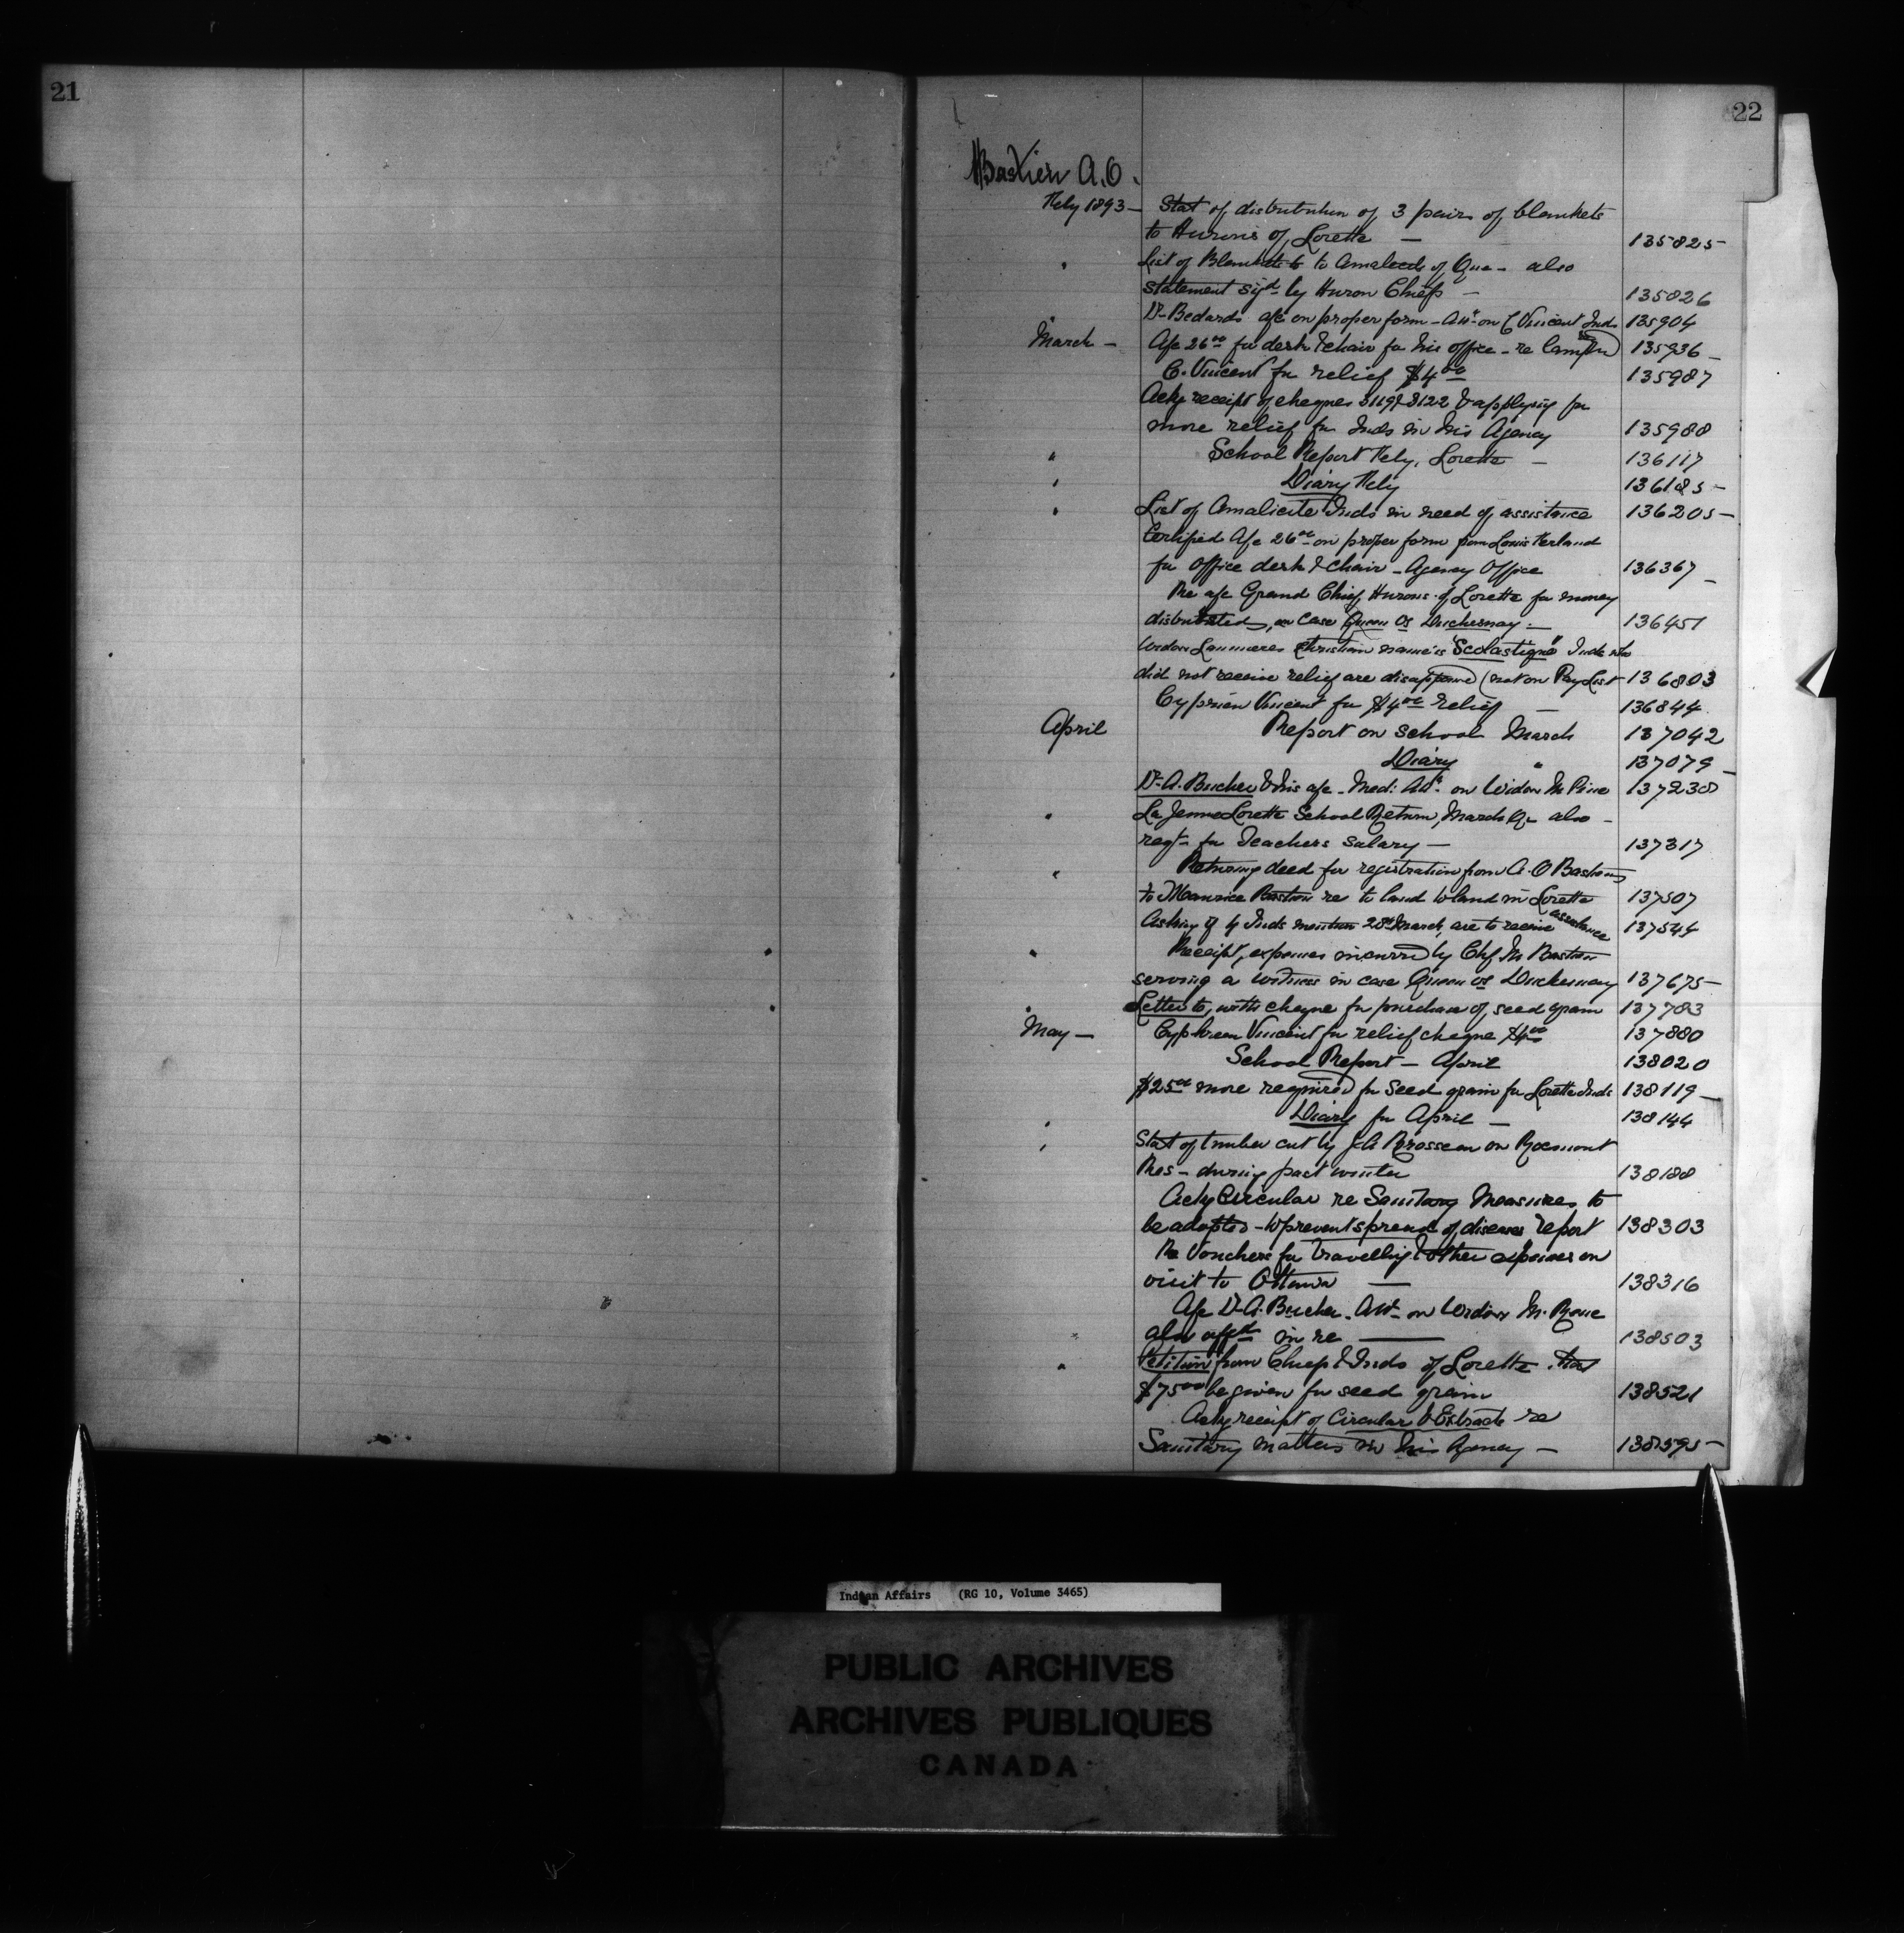 21
22
Bastien A.O.
Feby 1893 - Stat of distribution of 3 pairs of blankets
to Hurons of Lorette — 135825
" List of Blankets to Amalecite of Que - also
statement sigd by Huron Chiefs — 135826
" Dr Bedards a/c on proper form - Attce on C Vincent Inds 135904
March - A/c 26.00 for desk & chair for his office - re 135936
C. Vincent for relief $4.00 135987
Ackg receipt of cheques 3119 & 3122 & applying for
more relief for Inds in his Agency 135988
" School Report Feby, Lorette — 136117
" Diary Feby 136185
" List of Amalicite Inds in need of assistance 136205
Certified A/c 26.00 on proper form from Louis
for Office desk & chair - Agency Office 136367
Re a/c Grand Chief, Hurons of Lorette for money
distributed, in Case Queen vs Duchesnay — 136451
Widow Christian name is "Scolastique" Inds who
did not receive relief are (not on Pay List 136803
Cyprien Vincent for $4.00 relief — 136844
April Report on School March 137042
Diary " 137079
Dr A. Bucher & his a/c - Med: Attce on Widow M Pine 137238
" La Jeune Lorette School Return, March Qr also -
reqt for Teachers Salary — 137317
" Returning deed for registration from A. O Bastien
to Maurice Bastien re to land in Lorette 137507
Asking if Inds mention 28th March, are to receive assistance 137544
" Receipt, expenses incurred by Chf M Bastien
serving a witness in case Queen vs Duchesnay 137675
" Letter to, with cheque for purchase of seed grain 137783
May - Vincent for relief cheque $4.00 137880
School Report - April 138020
$25.00 more required for Seed grain for Lorette Inds 138119
" Diary for April — 138144
" Stat of timber cut by J.A Brosseau on Rocmont
Res - during past winter 138188
Ackg Circular re Sanitary Measures to
be adopted - to prevent spread of disease report 138303
Re Vouchers for Travelling & other expenses on
visit to Ottawa — 138316
A/c Dr A. Bucher - Attce on Widow M.
also affdt in re — 138503
" Petition from Chiefs & Inds of Lorette that
$75.00 be given for seed grain 138521
Ackg receipt of Circular & Extracts re
Sanitary matters in his Agency — 138595
Indian Affairs (RG 10, Volume 3465)
PUBLIC ARCHIVES
ARCHIVES PUBLIQUES
CANADA